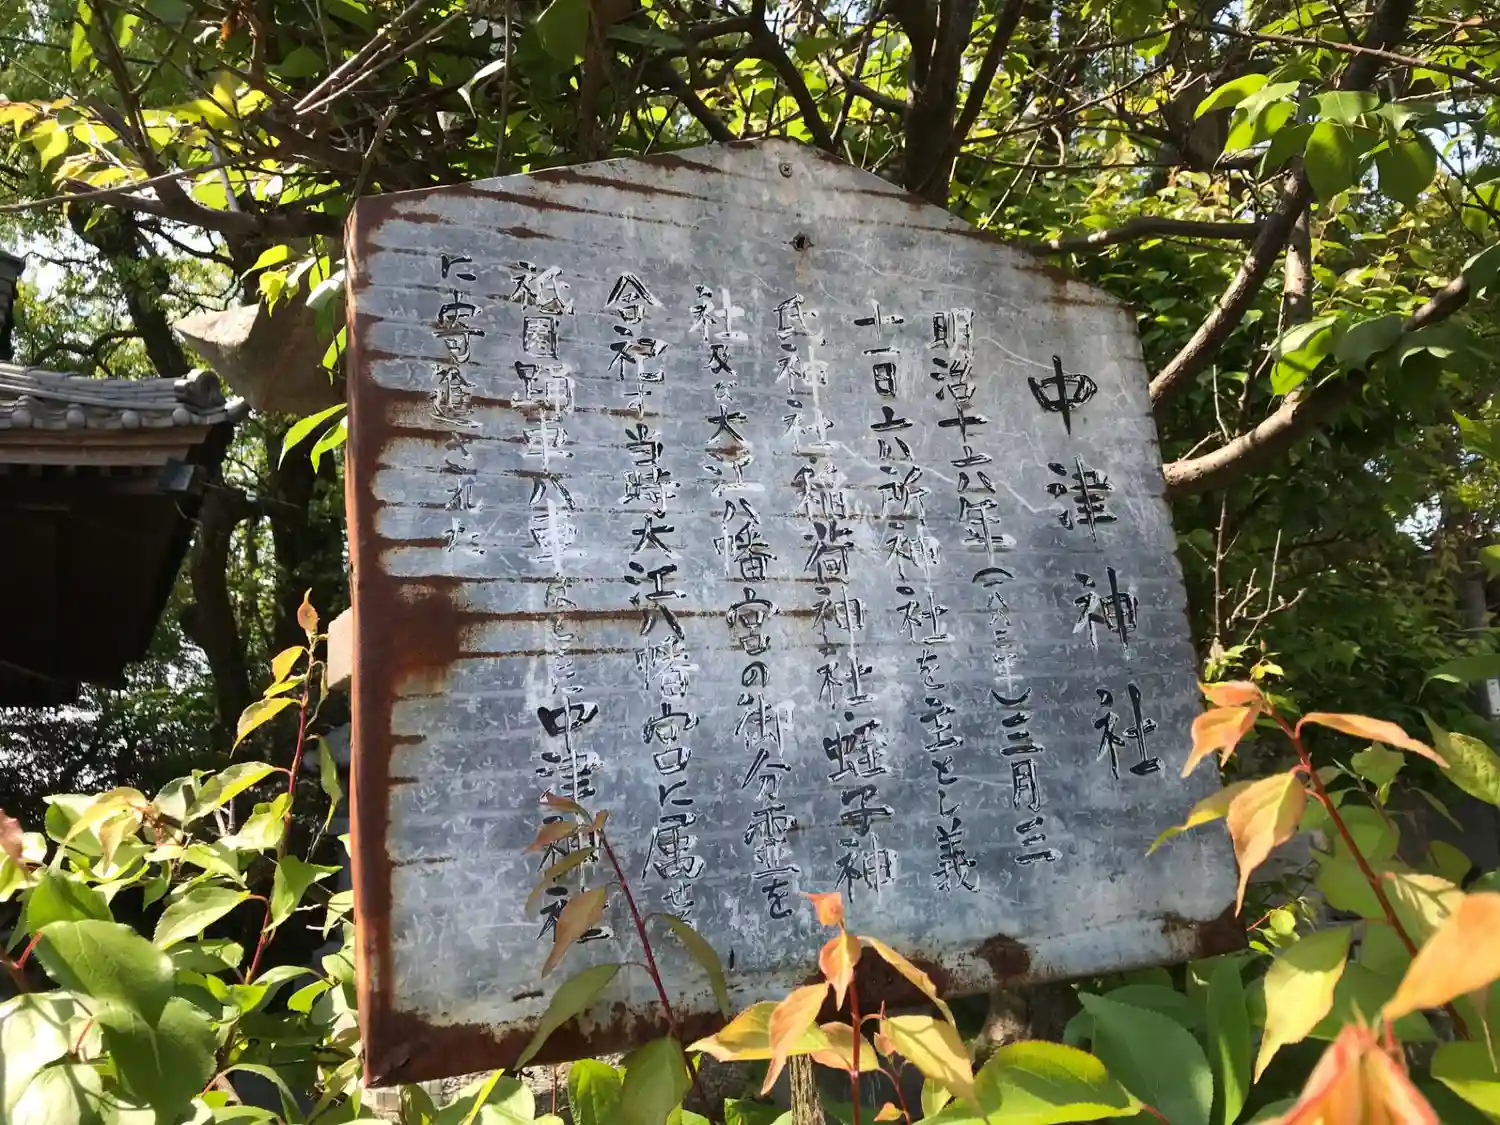 中津神社
明治十六年(一八八三年)三月三
十一日六所神社を主とし義
氏神社稲荷神社蛭子神
社及び大江八幡宮の御分霊を
合社す当時大江八幡宮に属せる
祇園踊車八車はこの中津神社
に寄進された